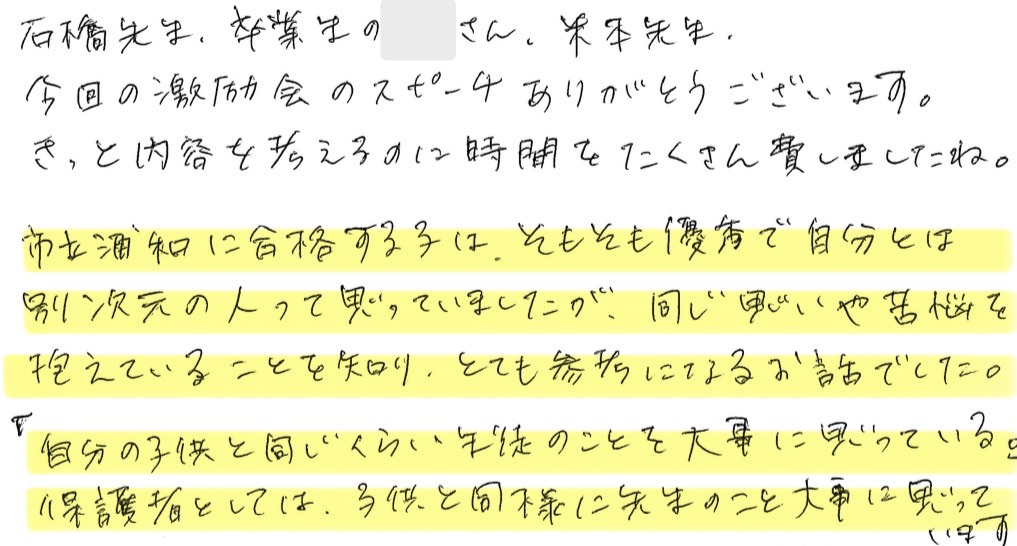 石橋先生、卒業生の さん、米本先生、
今回の激励会のスピーチありがとうございます。
きっと内容を考えるのに時間をたくさん費しましたね。
市立浦和に合格する子は、そもそも優秀で自分とは
別次元の人って思っていましたが、同じ思いや苦悩を
抱えていることを知り、とても参考になるお話でした。
「自分の子供と同じくらい生徒のことを大事に思っている」
保護者としては、子供と同様に先生のこと大事に思って
います